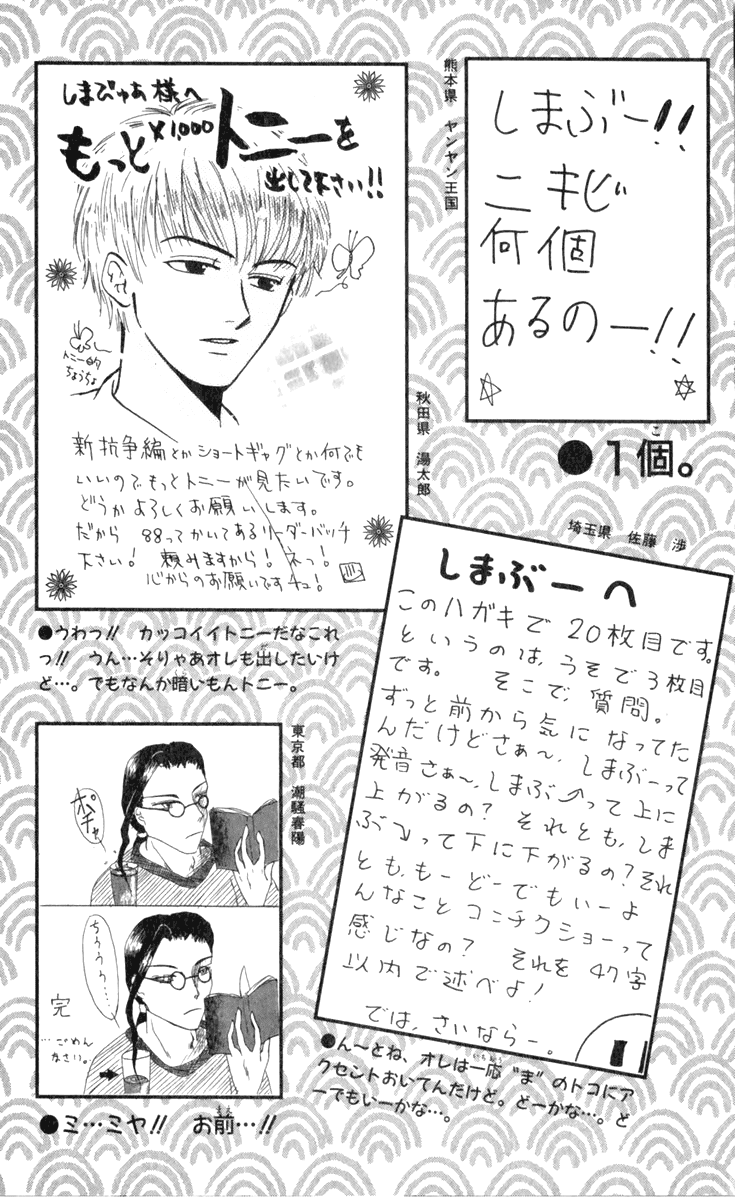 熊本県 ヤンヤン王国
しまぶー!!
ニキビ
何個
あるのー!!
●1個。
こ
しまびゅあ様へ
もっと×1,000トニーを
出して下さい!!
トニー的
ちょうちょ
新抗争編とかショートギャグとか何でも
いいのでもっとトニーが見たいです。
どうかよろしくお願いします。
だから 88ってかいてあるリーダーバッチ
下さい! 頼みますから! ネっ!
心からのお願いですチュ!
秋田県 湯太郎
●うわっ!! カッコイイトニーだなこれ
っ!! うん…そりゃあオレも出したいけ
ど…。でもなんか暗いもんトニー。
埼玉県 佐藤 渉
しまぶーへ
このハガキで 20枚目です。
というのは、うそで3枚目
です。 そこで、質問。
ずっと前から気になってた
んだけどさぁ~、しまぶーって
発音さぁ~、しまぶ↗って上に
上がるの? それとも、しま
ぶ↘って下に下がるの?それ
とも、もーどーでもいーよ
んなことコンチクショーって
感じなの? それを 47字
以内で述べよ!
では、さいならー。
●ん~とね、オレは一応“ま”のトコにア
いちおう
クセントおいてんだけど。どーかな…。ど
ーでもいーかな…。
東京都 潮騒春陽
ポチャ
ちううう…
完
…ごめん
なさい。
●ミ…ミヤ!! お前…!!
まえ